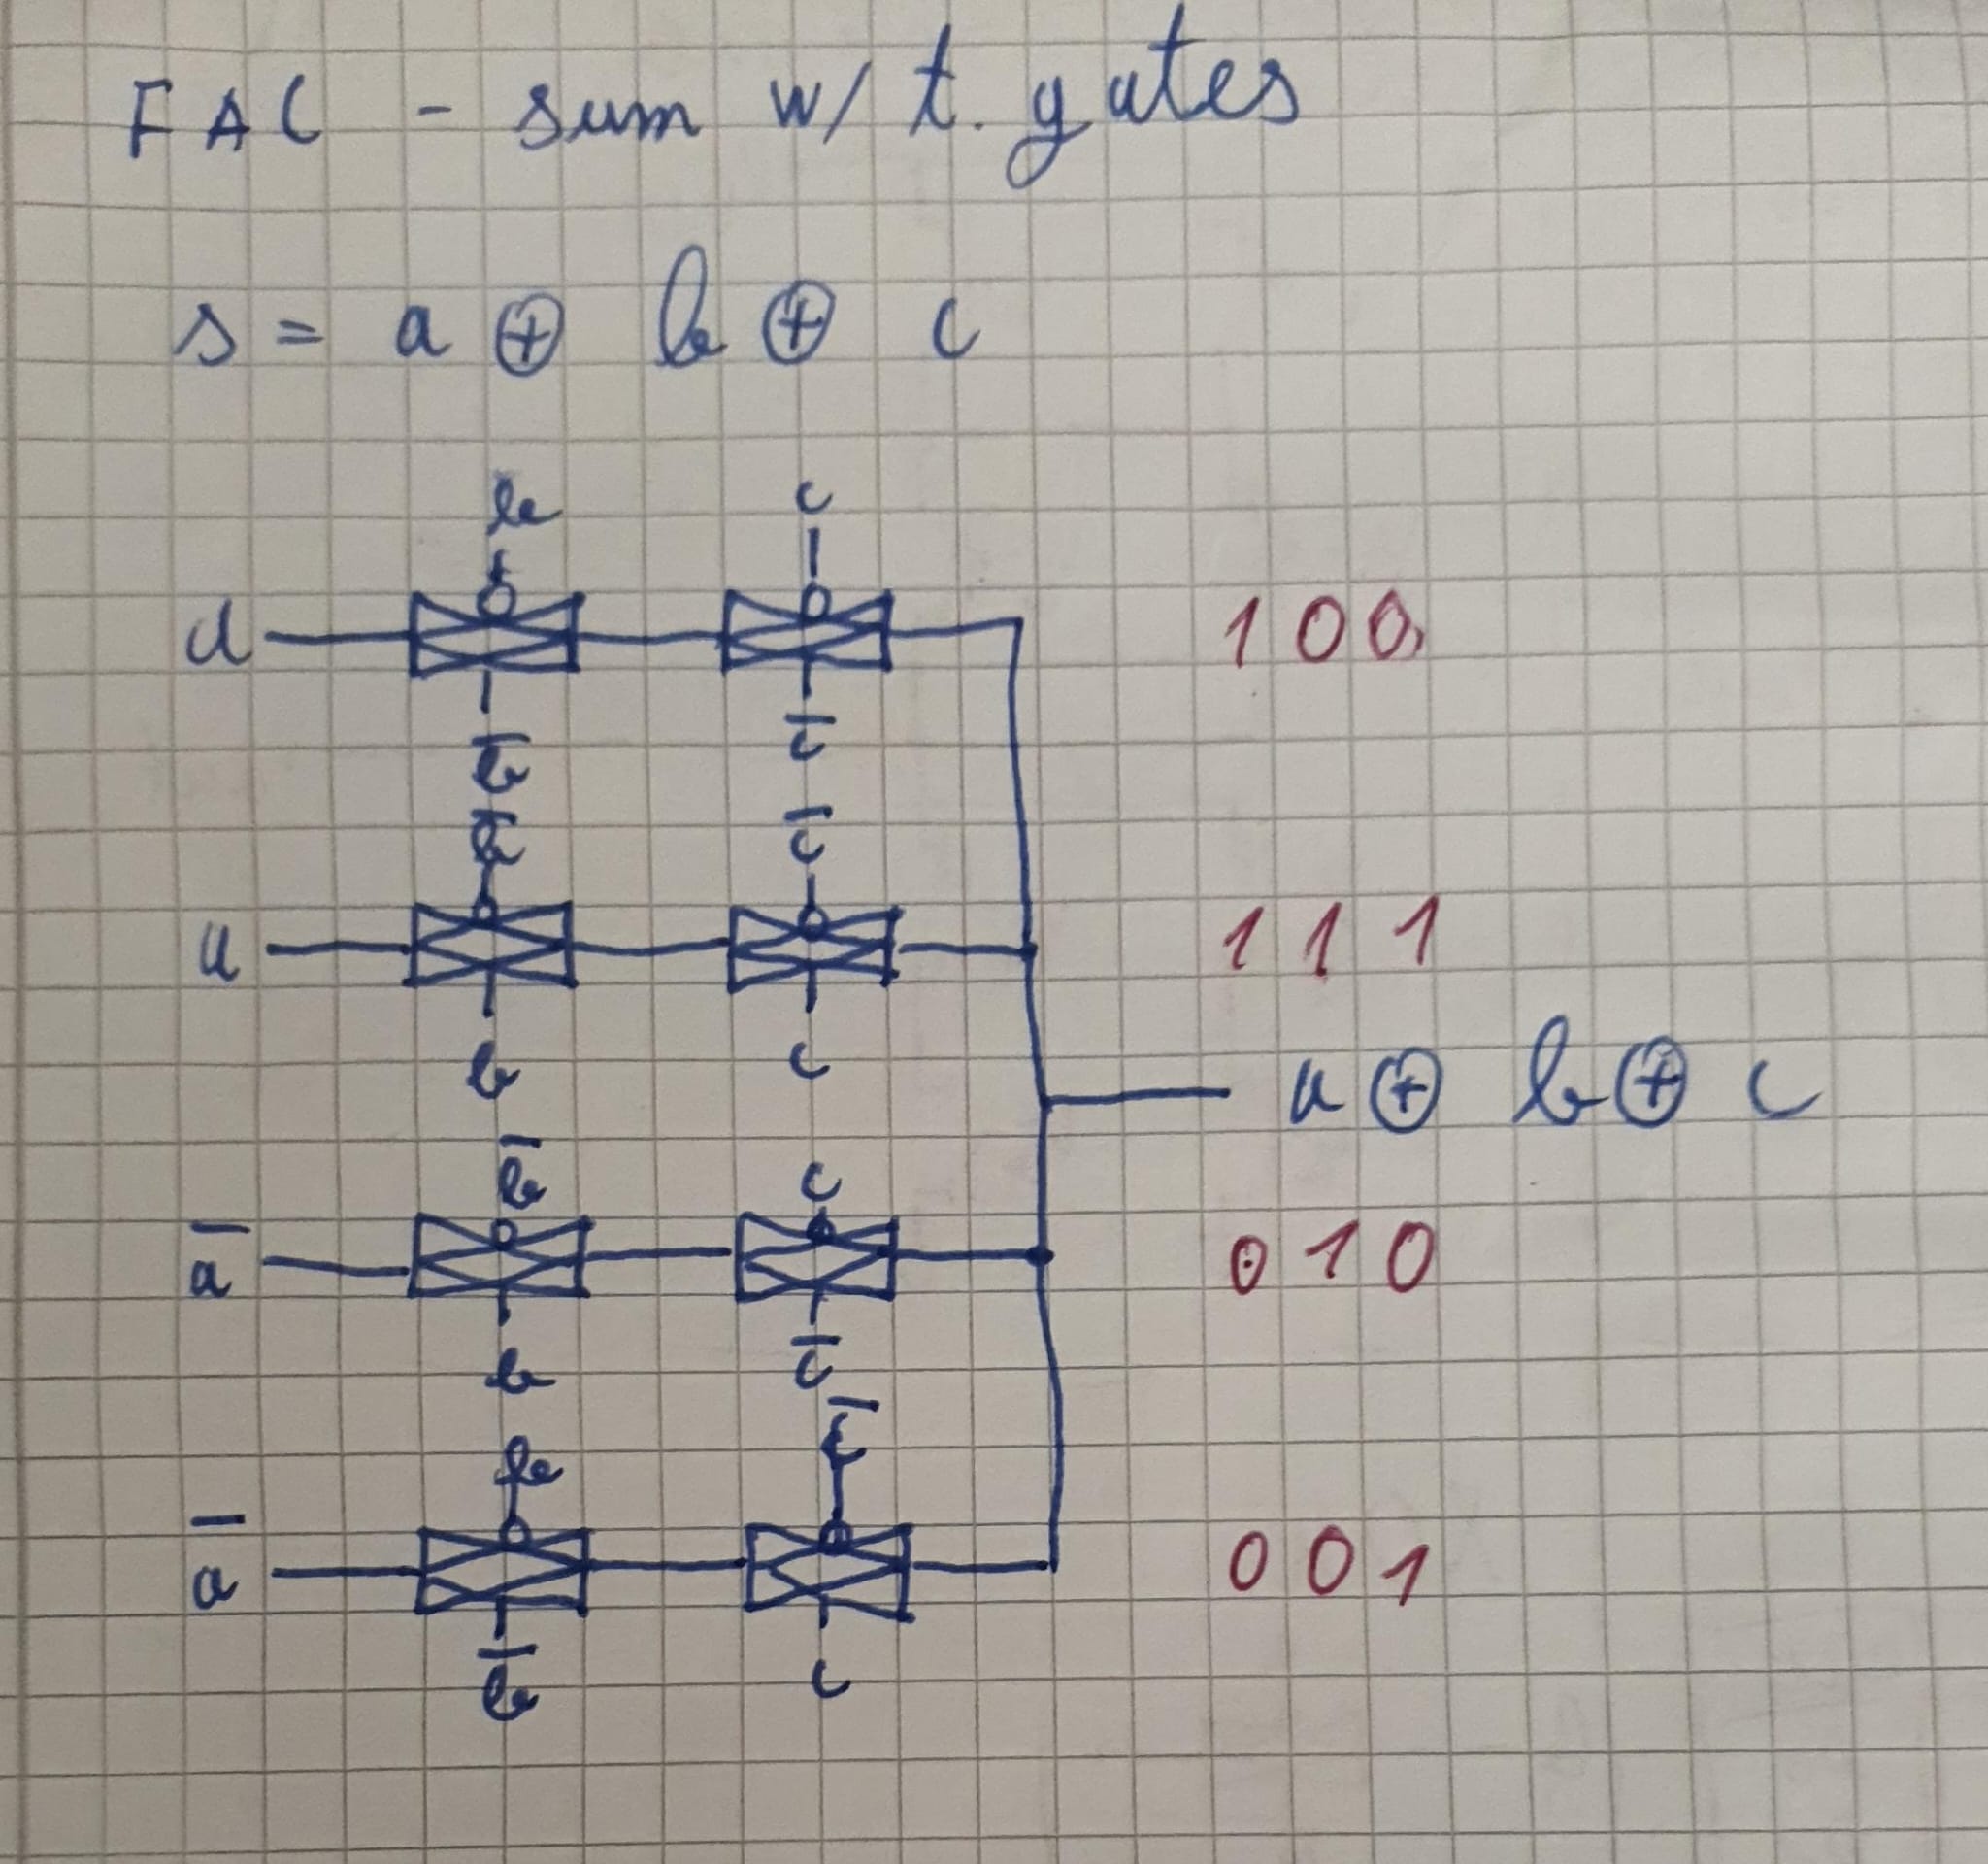 FAC - sum w/ t. gates
s = a ⊕ b ⊕ c
b c
a 1 0 0
b̄ c̄
b̄ c̄
a 1 1 1
b c
a ⊕ b ⊕ c
b̄ c
ā 0 1 0
b c̄
b c̄
ā 0 0 1
b̄ c